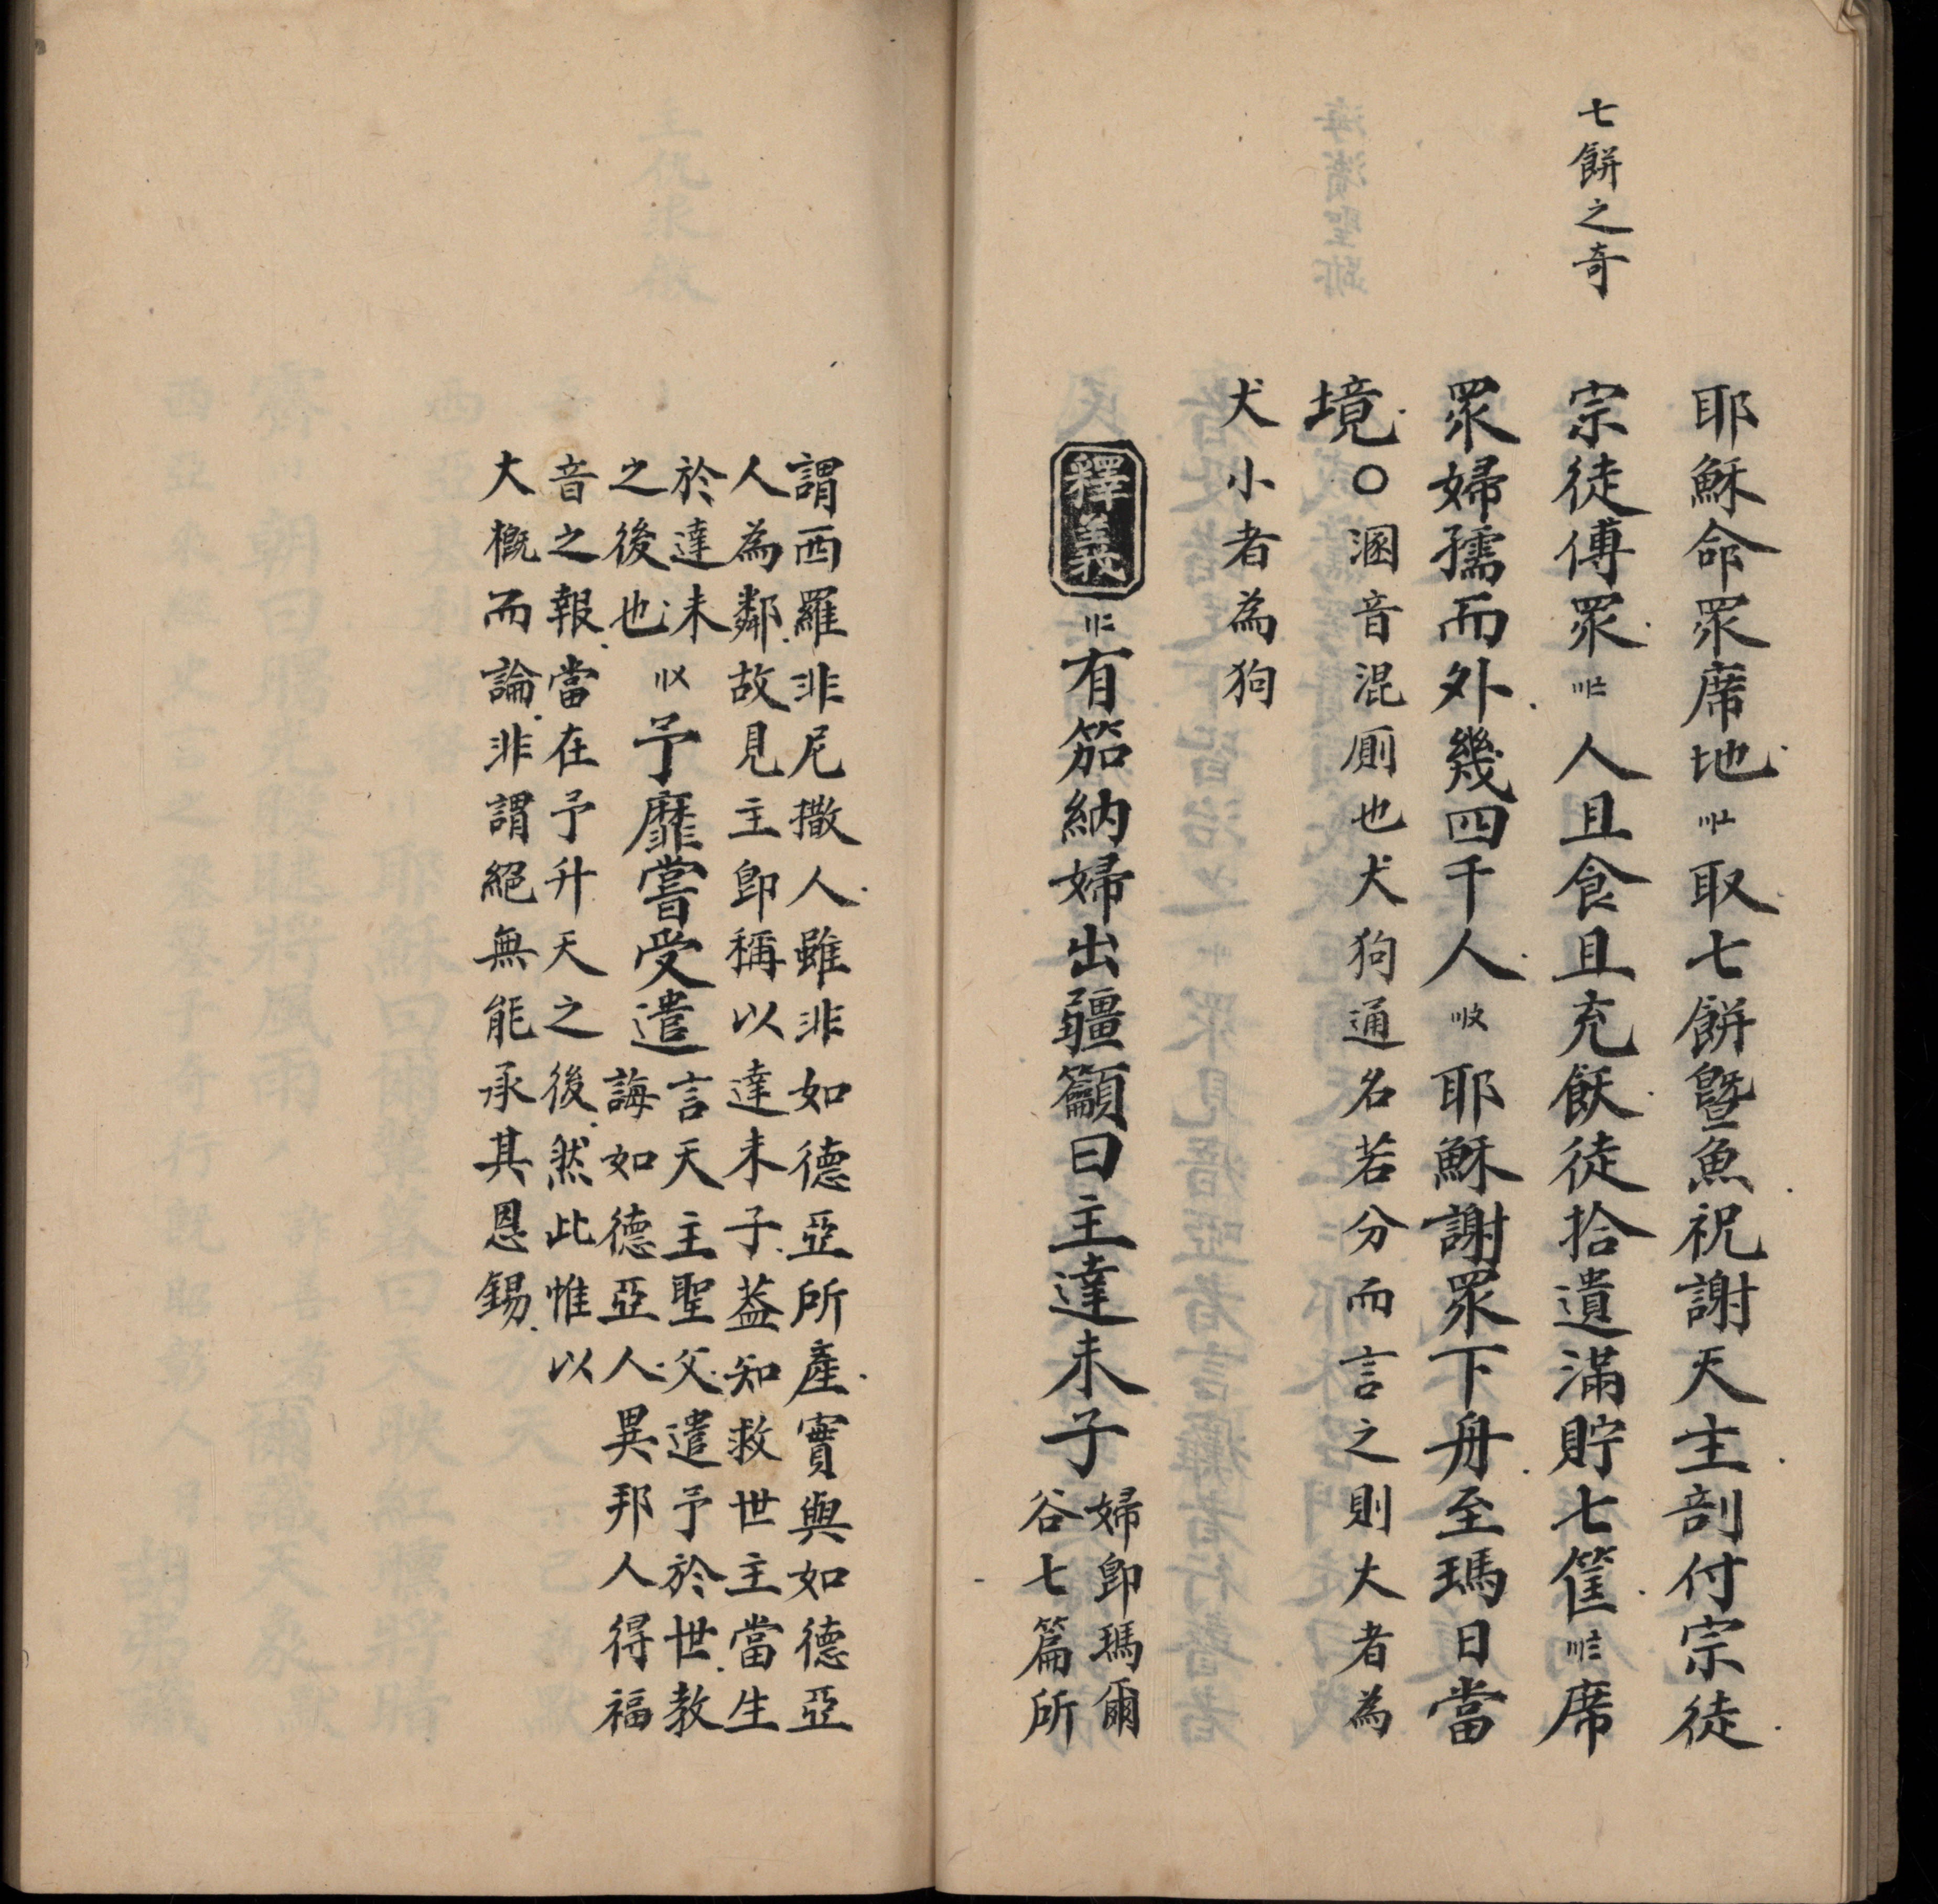 七餅之奇
耶穌命眾席地〣〦取七餅曁魚祝謝天主剖付宗徒
宗徒傅眾〣〧人且食且充飫徒拾遺滿貯七筐〣〨席
眾婦孺而外幾四千人〣〩耶穌謝眾下舟至瑪日當
境○溷音混厠也犬狗通名若分而言之則大者為
犬小者為狗
釋義〢二有笳納婦出疆籲曰主達未子婦卽瑪爾
谷七篇所
謂西羅非尼撒人雖非如德亞所產實與如德亞
人為鄰故見主卽稱以達未子葢知救世主當生
於達未
之後也〢〤予靡嘗受遣言天主聖父遣予於世教
誨如德亞人異邦人得福
音之報當在予升天之後然此惟以
大概而論非謂絕無能承其恩錫